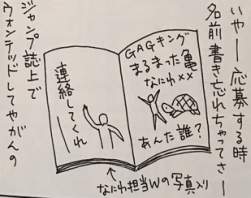 いやー応募する時
名前書き忘れちゃってさー
GAGキング
まるまった亀
なにわ××
あんた誰？
連絡してくれ
なにわ担当Wの写真入り
ジャンプ誌上で
ウォンテッドしてやがんの